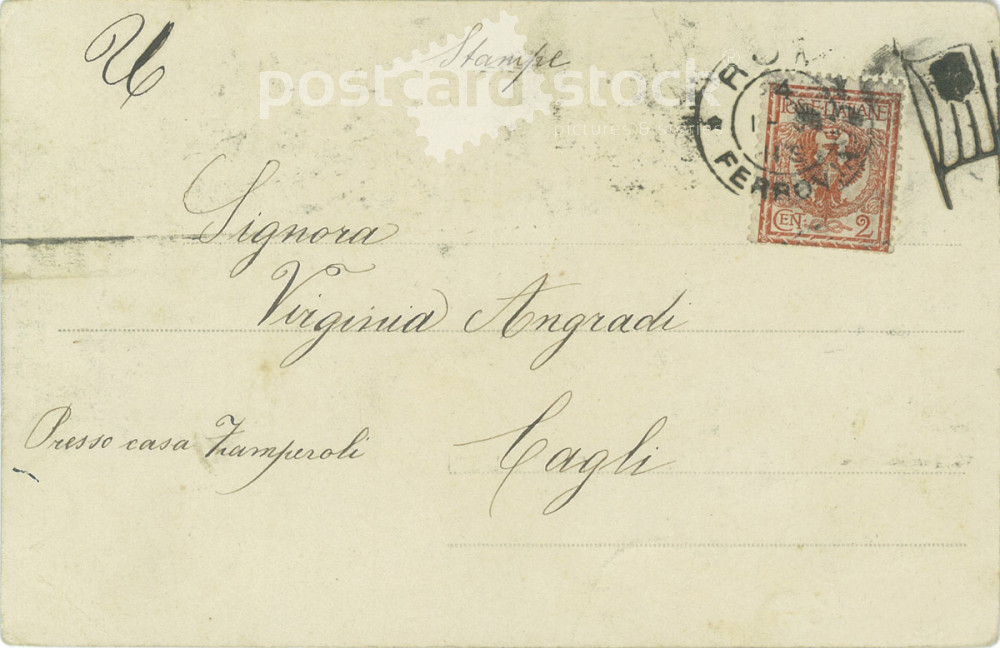 U
Stampe
postcard.stock
pictures & stories
ROMA
FERROVIA
POSTE ITALIANE
CEN. 2
Signora
Virginia Angradi
Presso casa Zamperoli
Cagli